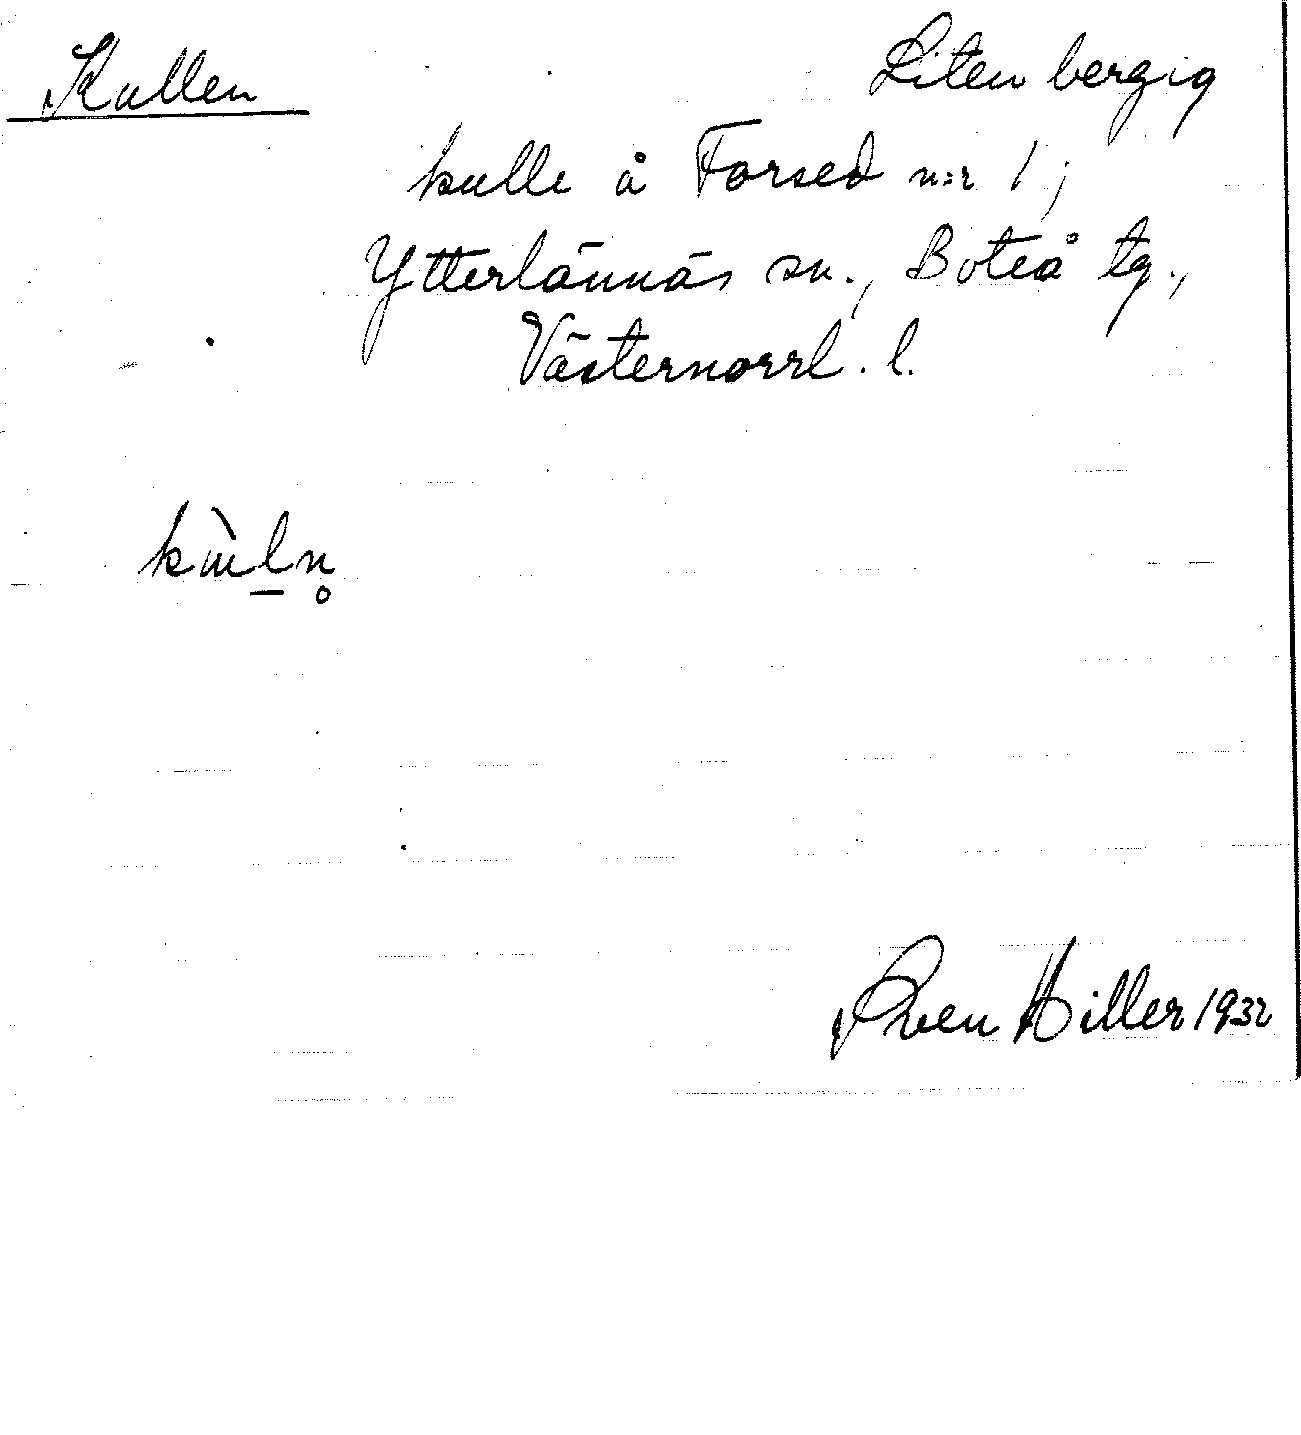 Kullen
Liten bergig
kulle å Forsed n:r 1;
Ytterlännäs sn., Boteå tg.,
Västernorrl. l.
Sven Hiller 1932